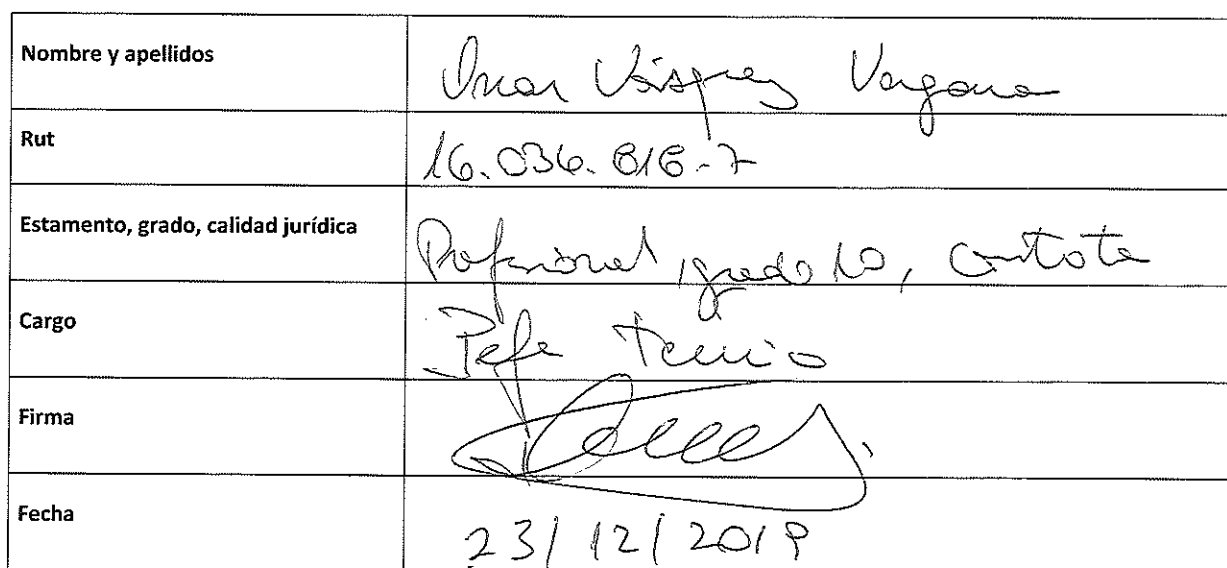 Nombre y apellidos
Vásquez Vergara
Rut
16.036.616-7
Estamento, grado, calidad jurídica
Profesional, grado 10, contrata
Cargo
Jefe Técnico
Firma
Fecha
23/12/2019